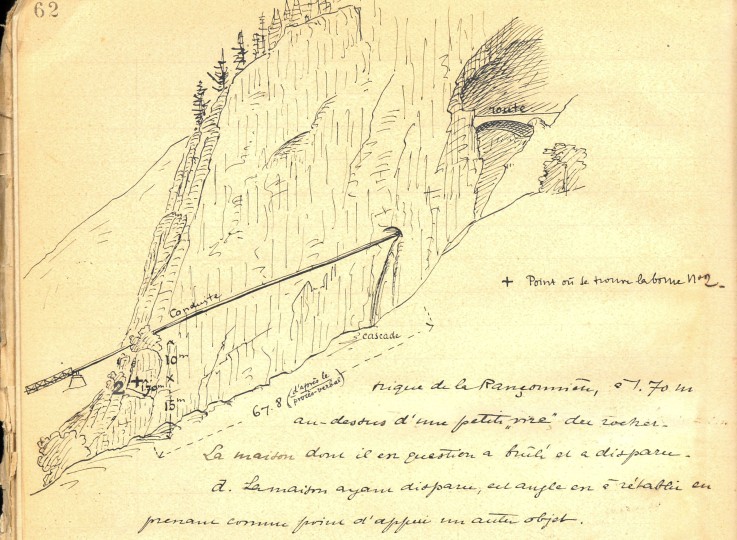 62
route
Conduite
+ Point où se trouve la borne No 2.
cascade
10m
2 + 1.70m
×
15m
67.8 (d'après le procès-verbal)
trique de la Rançonnière, à 1.70 m
au-dessus d'une petite "vire" du rocher.
La maison dont il est question a brûlé et a disparu.
d. La maison ayant disparu, cet angle est à rétablir en
prenant comme point d'appui un autre objet.